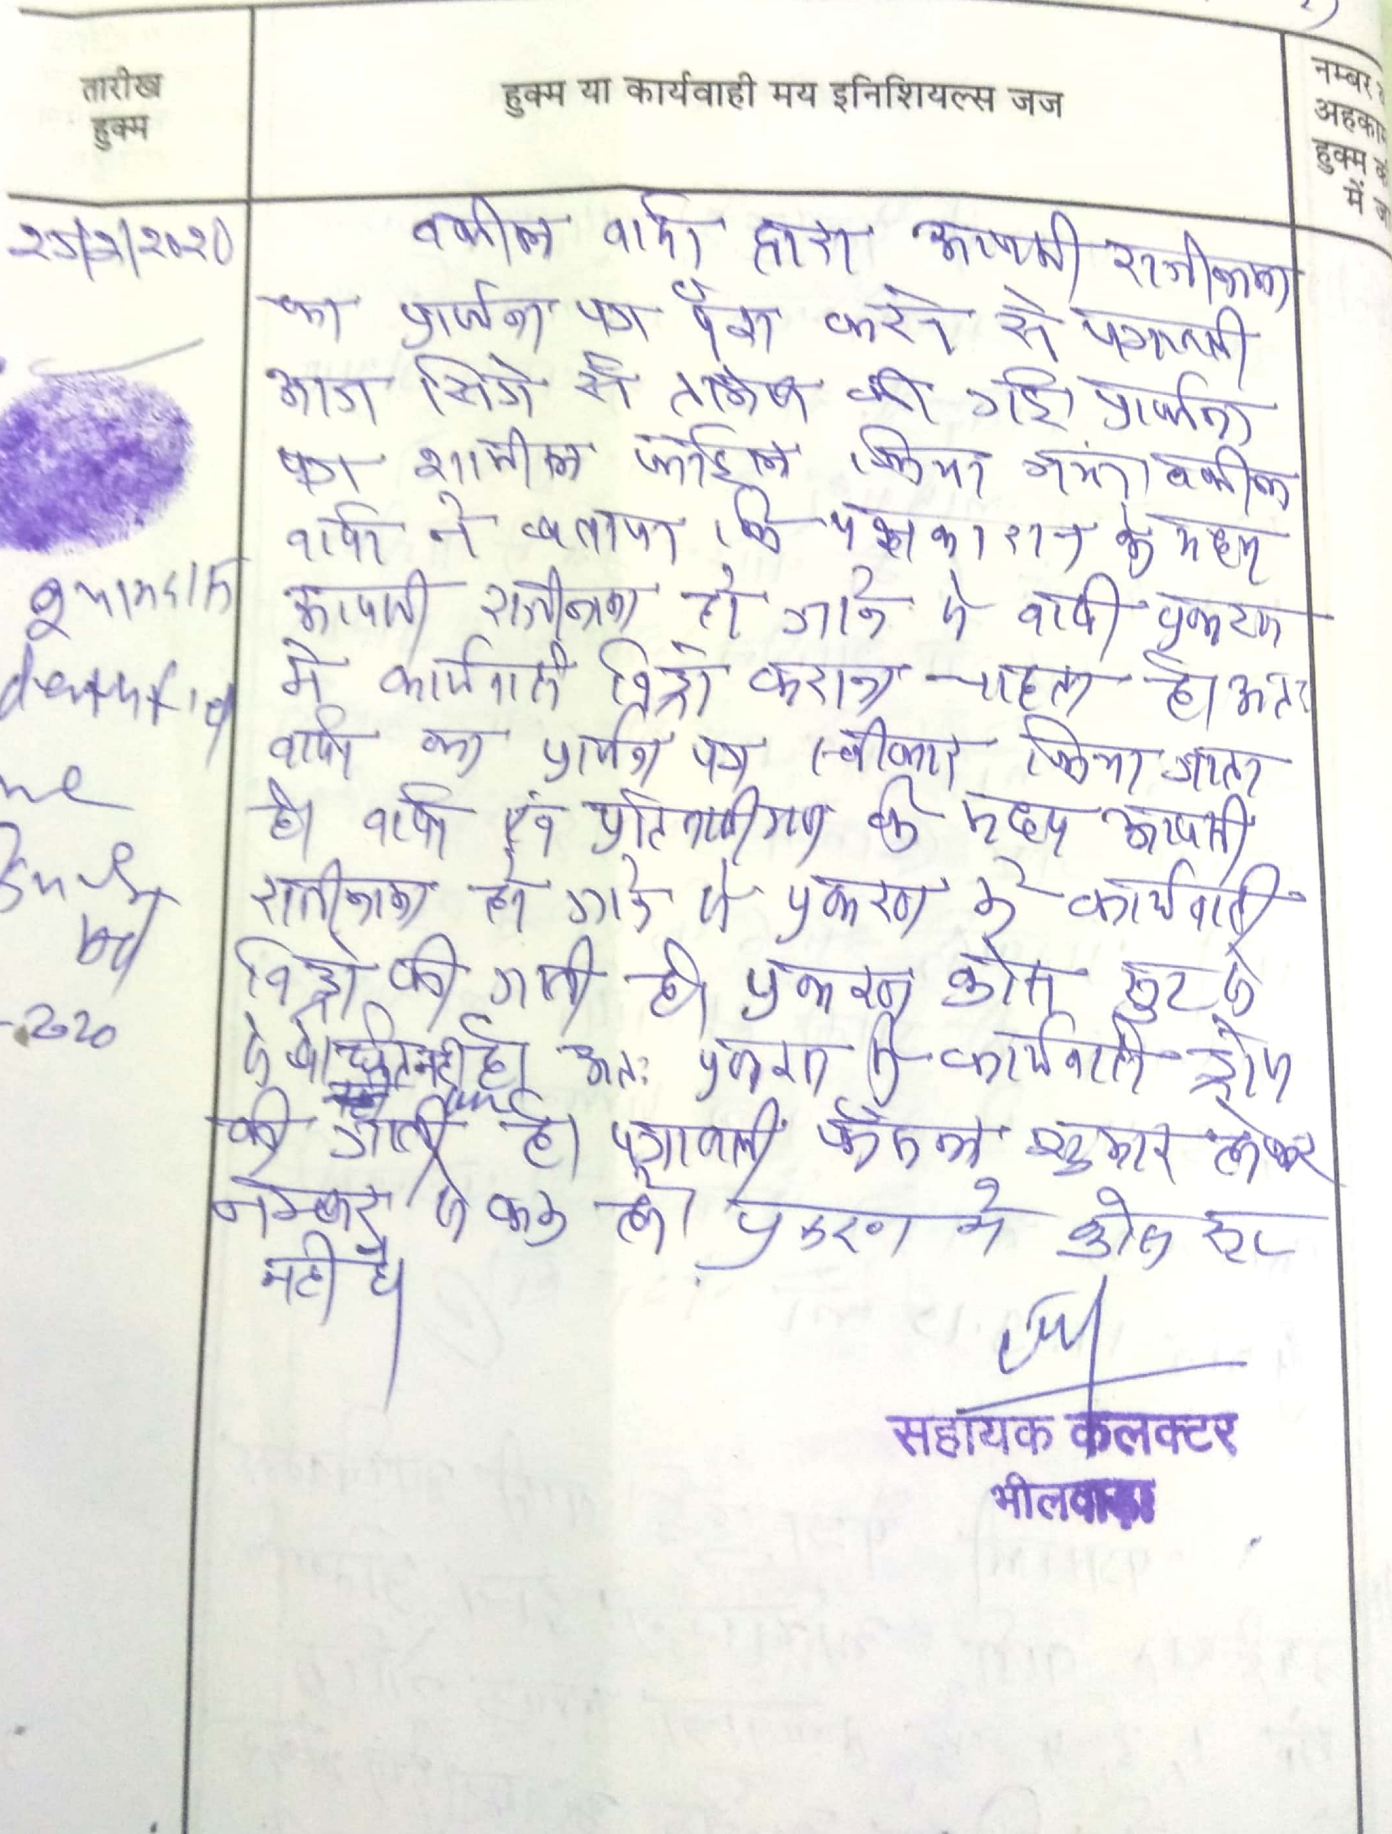 तारीख
हुक्म
हुक्म या कार्यवाही मय इनिशियल्स जज
नम्बर
अहकाम
हुक्म
में
वकील वादी द्वारा आपसी राजीनामा
का प्रार्थना पत्र पेश करने से पत्रावली
आज सिगे से तलब की गई। प्रार्थना
पत्र शामील फाईल किया गया। वकील
वादी ने बताया कि पक्षकारान के मध्य
आपसी राजीनामा हो जाने से वादी प्रकरण
में कार्यवाही विड्रो कराना चाहता है। अतः
वादी का प्रार्थना पत्र स्वीकार किया जाता
है। वादी एवं प्रतिवादीगण के मध्य आपसी
राजीनामा हो जाने से प्रकरण में कार्यवाही
विड्रो की जाती है। प्रकरण
नहीं है। अतः प्रकरण में कार्यवाही ड्रोप
की जाती है। पत्रावली फैसल शुमार होकर
नम्बर से कम हो। प्रकरण में
नहीं है।
सहायक कलक्टर
भीलवाड़ा
me
by
2020